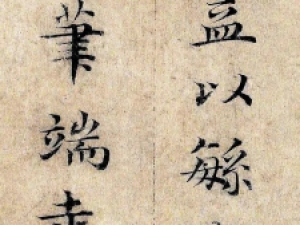 益以繇
筆端